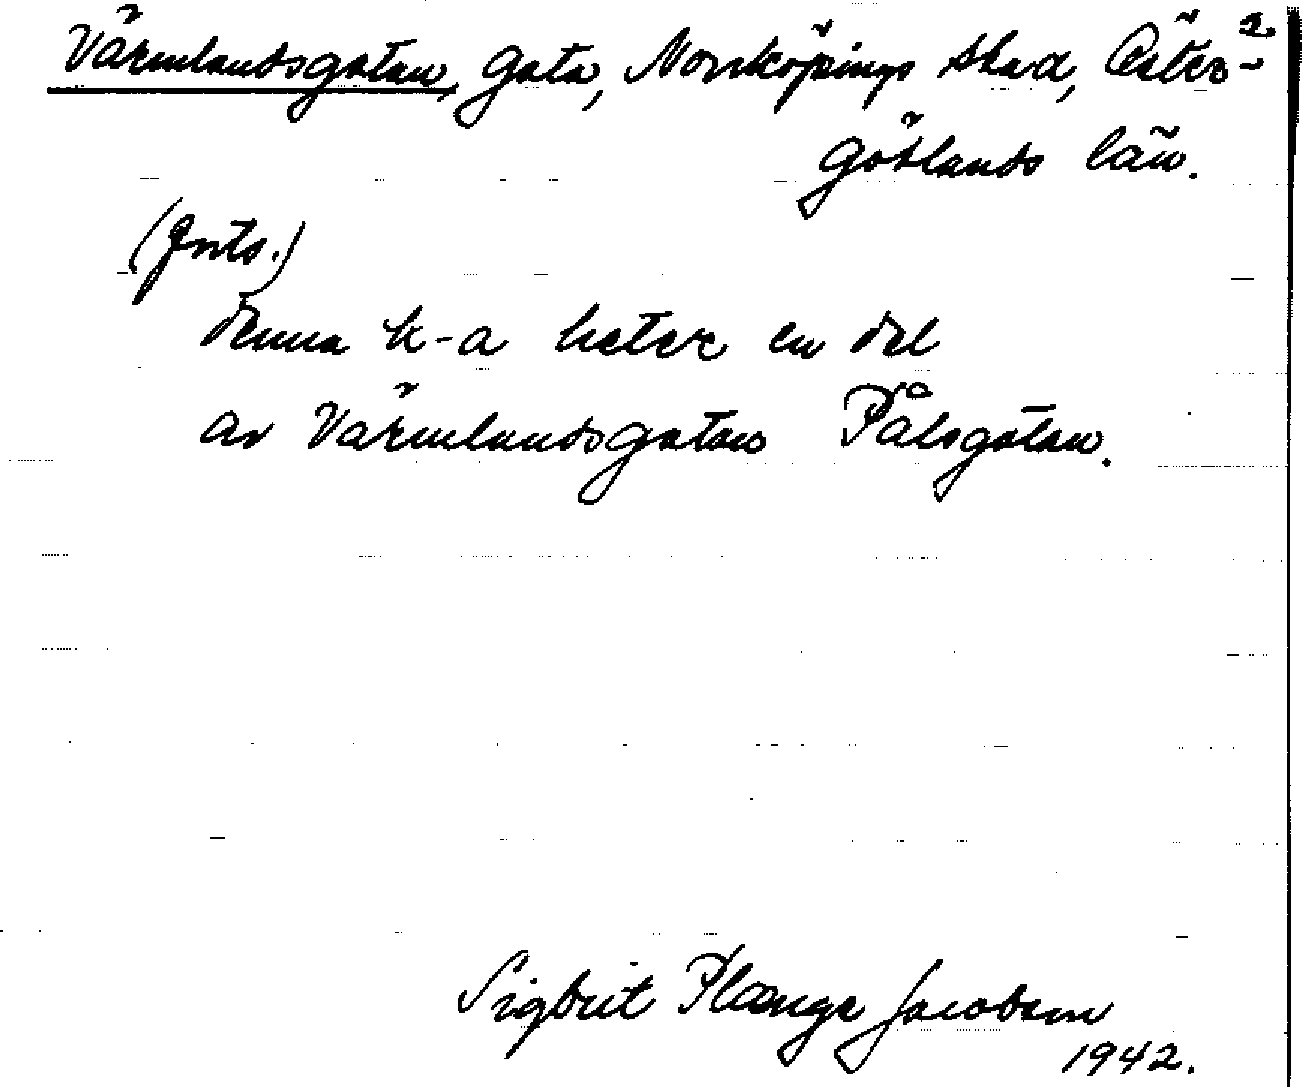 Värmlandsgatan, gata, Norrköpings stad, Öster- 2.
götlands län.
(forts.)
denna k-a heter en del
av Värmlandsgatan Pålsgatan.
Sigbrit Plænge Jacobson
1942.